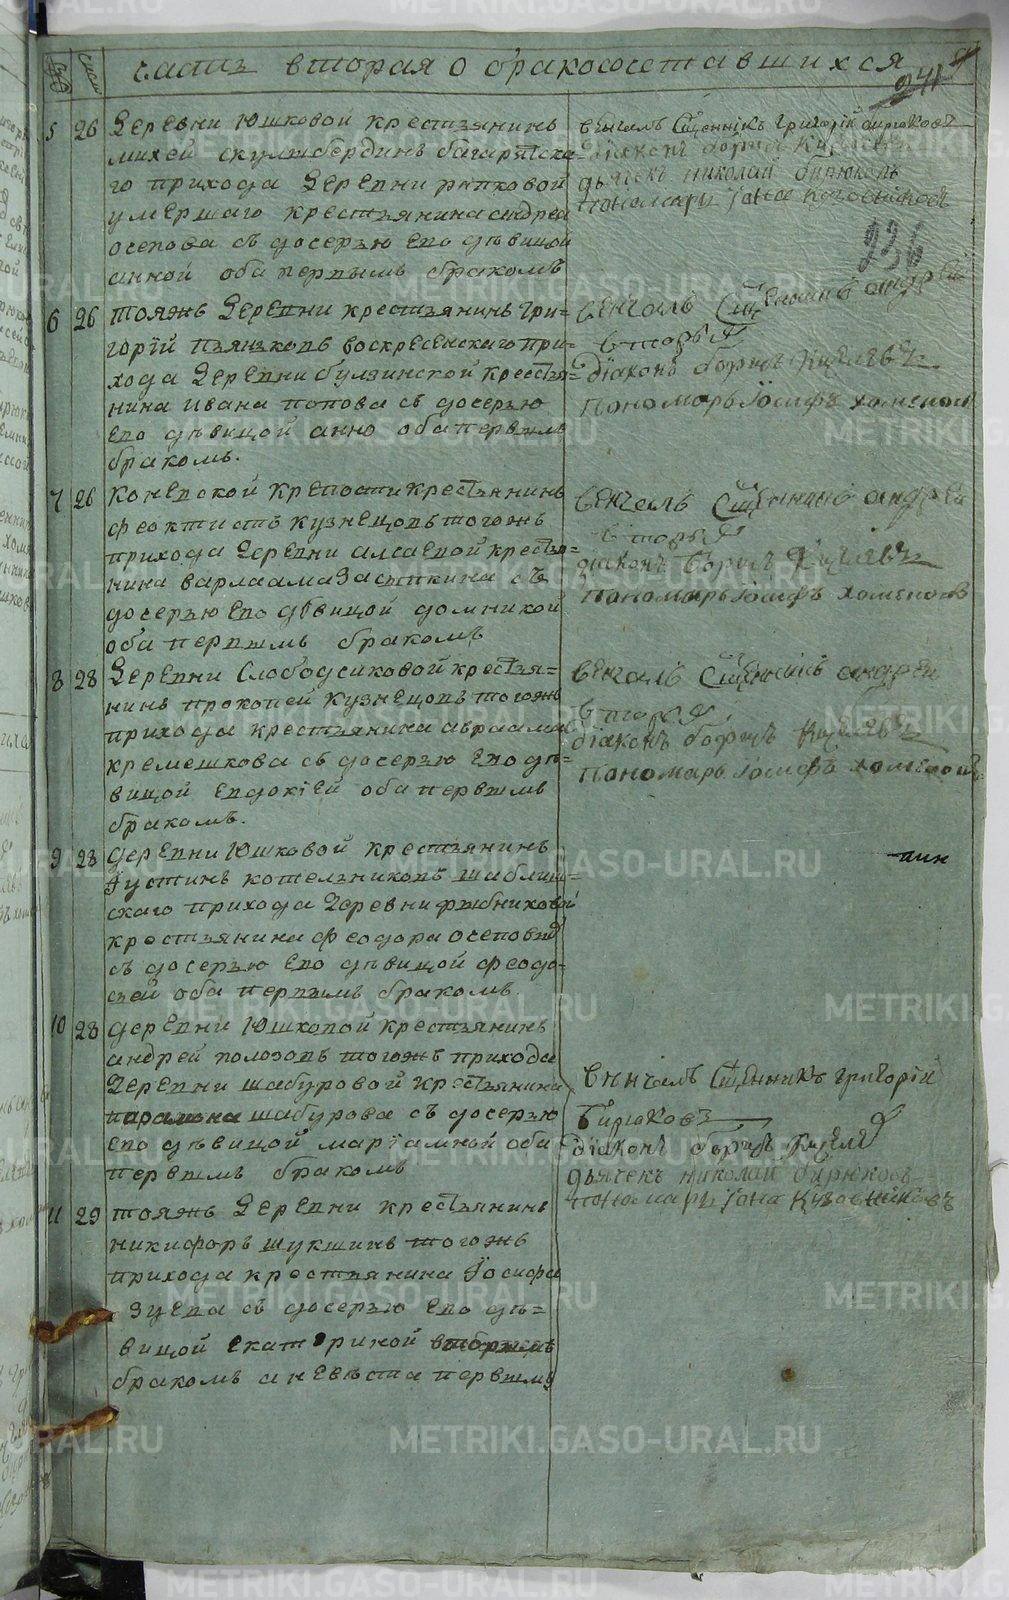 часть вторая о бракосочетавшихся
241
236
5 26 Деревни Юшковой крестьянинъ
михей скулыбердинъ багарятска-
го прихода деревни
умершаго крестьянина андрея
осепова съ дочерью его дѣвицой
анной оба первымъ бракомъ
венчалъ Сщенникъ григорий бирюковъ
діаконъ борисъ Киселевъ
дьячекъ николай бирюковъ
пономарь іона кузовниковъ
6 26 тояжъ деревни крестьянинъ гри=
горій пьянковъ воскресенскаго при=
хода деревни булзинской крестья=
нина ивана попова съ дочерью
его дѣвицой анно оба первымъ
бракомъ.
венчалъ Сщенникъ андрей
вторы
діаконъ борисъ Киселевъ
пономарь Іосифъ хоменовъ
7 26 Коневской крепости крестьянинъ
феоктистъ кузнецовъ тогожъ
прихода деревни алсаевой крестья=
нина варлаама засыпкина съ
дочерью его дѣвицой домникой
оба первымъ бракомъ
венчалъ Сщенникъ андрей
вторы
діаконъ борисъ Киселевъ
пономарь Іосифъ хоменовъ
8 28 Деревни Слободчиковой крестья=
нинъ прокопей кузнецовъ тогожъ
прихода крестьянина авраама
кремешкова съ дочерью его дѣ=
вицой евдокіей оба первымъ
бракомъ.
венчалъ Сщенникъ андрей
вторы
діаконъ борисъ Киселевъ
пономарь Іосифъ хоменовъ
9 28 деревни Юшковой крестьянинъ
Іустинъ котельниковъ шаблиш=
скаго прихода деревни рыбниковой
крестьянина феодора осепова
съ дочерью его дѣвицой феодо-
сьей оба первымъ бракомъ.
10 28 деревни Юшковой крестьянинъ
андрей полозовъ тогожъ прихода
деревни шабуровой крестьянина
парамона шабурова съ дочерью
его дѣвицой маріамной оба
первымъ бракомъ
венчалъ Сщенникъ григорій
Бирюковъ
діаконъ борисъ Киселе
дьячекъ николай бирюковъ
пономарь іона Кузовниковъ
11 29 тояжъ деревни крестьянинъ
никифоръ шукшинъ тогожъ
прихода крестьянина Іосифа
зуева съ дочерью его дѣ=
вицой екатериной вторымъ
бракомъ а невѣста первымъ
METRIKI.GASO-URAL.RU